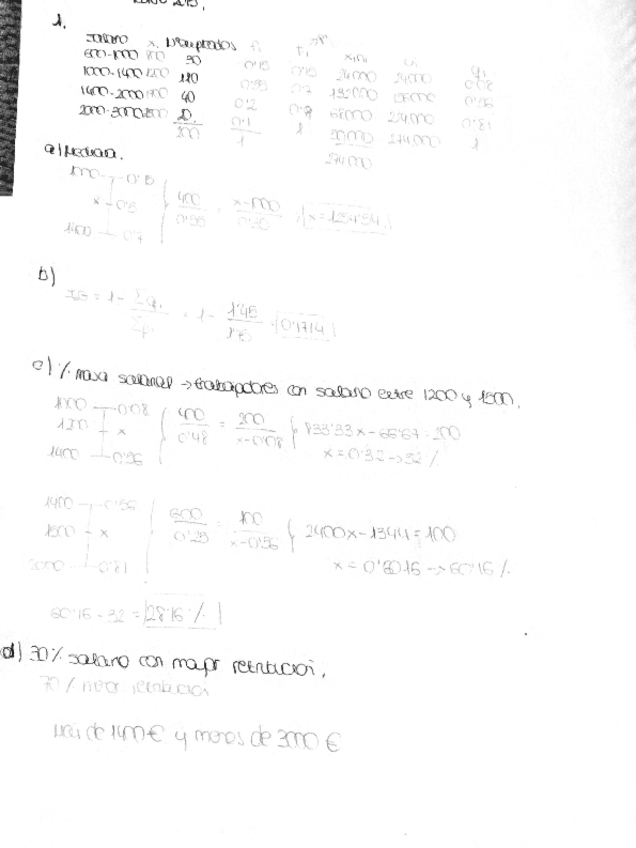 1.
Salario xi Nº empleados fi Fi xini ui qi
600-1000 800 30 0'15 0'15 24000 24000 0'08
1000-1400 1200 110 0'55 0'7 132000 156000 0'56
1400-2000 1700 40 0'2 0'9 68000 224000 0'81
2000-3000 2500 20 0'1 1 50000 274000 1
200 1 274000
a) Mediana.
1000 0'15
x 0'5 400/0'55 = x-1000/0'35 x=1254'54
1400 0'7
b)
IG = 1 - Σqi/Σpi = 1 - 1'45/1'75 = 0'1714
c) % masa salarial → trabajadores con salario entre 1200 y 1500.
1000 0'08
1200 x 400/0'48 = 200/x-0'08 833'33x-66'67=200
1400 0'56 x=0'32 → 32%
1400 0'56
1500 x 600/0'25 = 100/x-0'56 2400x-1344=100
2000 0'81 x=0'6016 → 60'16%
60'16-32 = 28'16%
d) 30% salario con mayor retribución.
70% menor retribución
Más de 1400€ y menos de 3000€